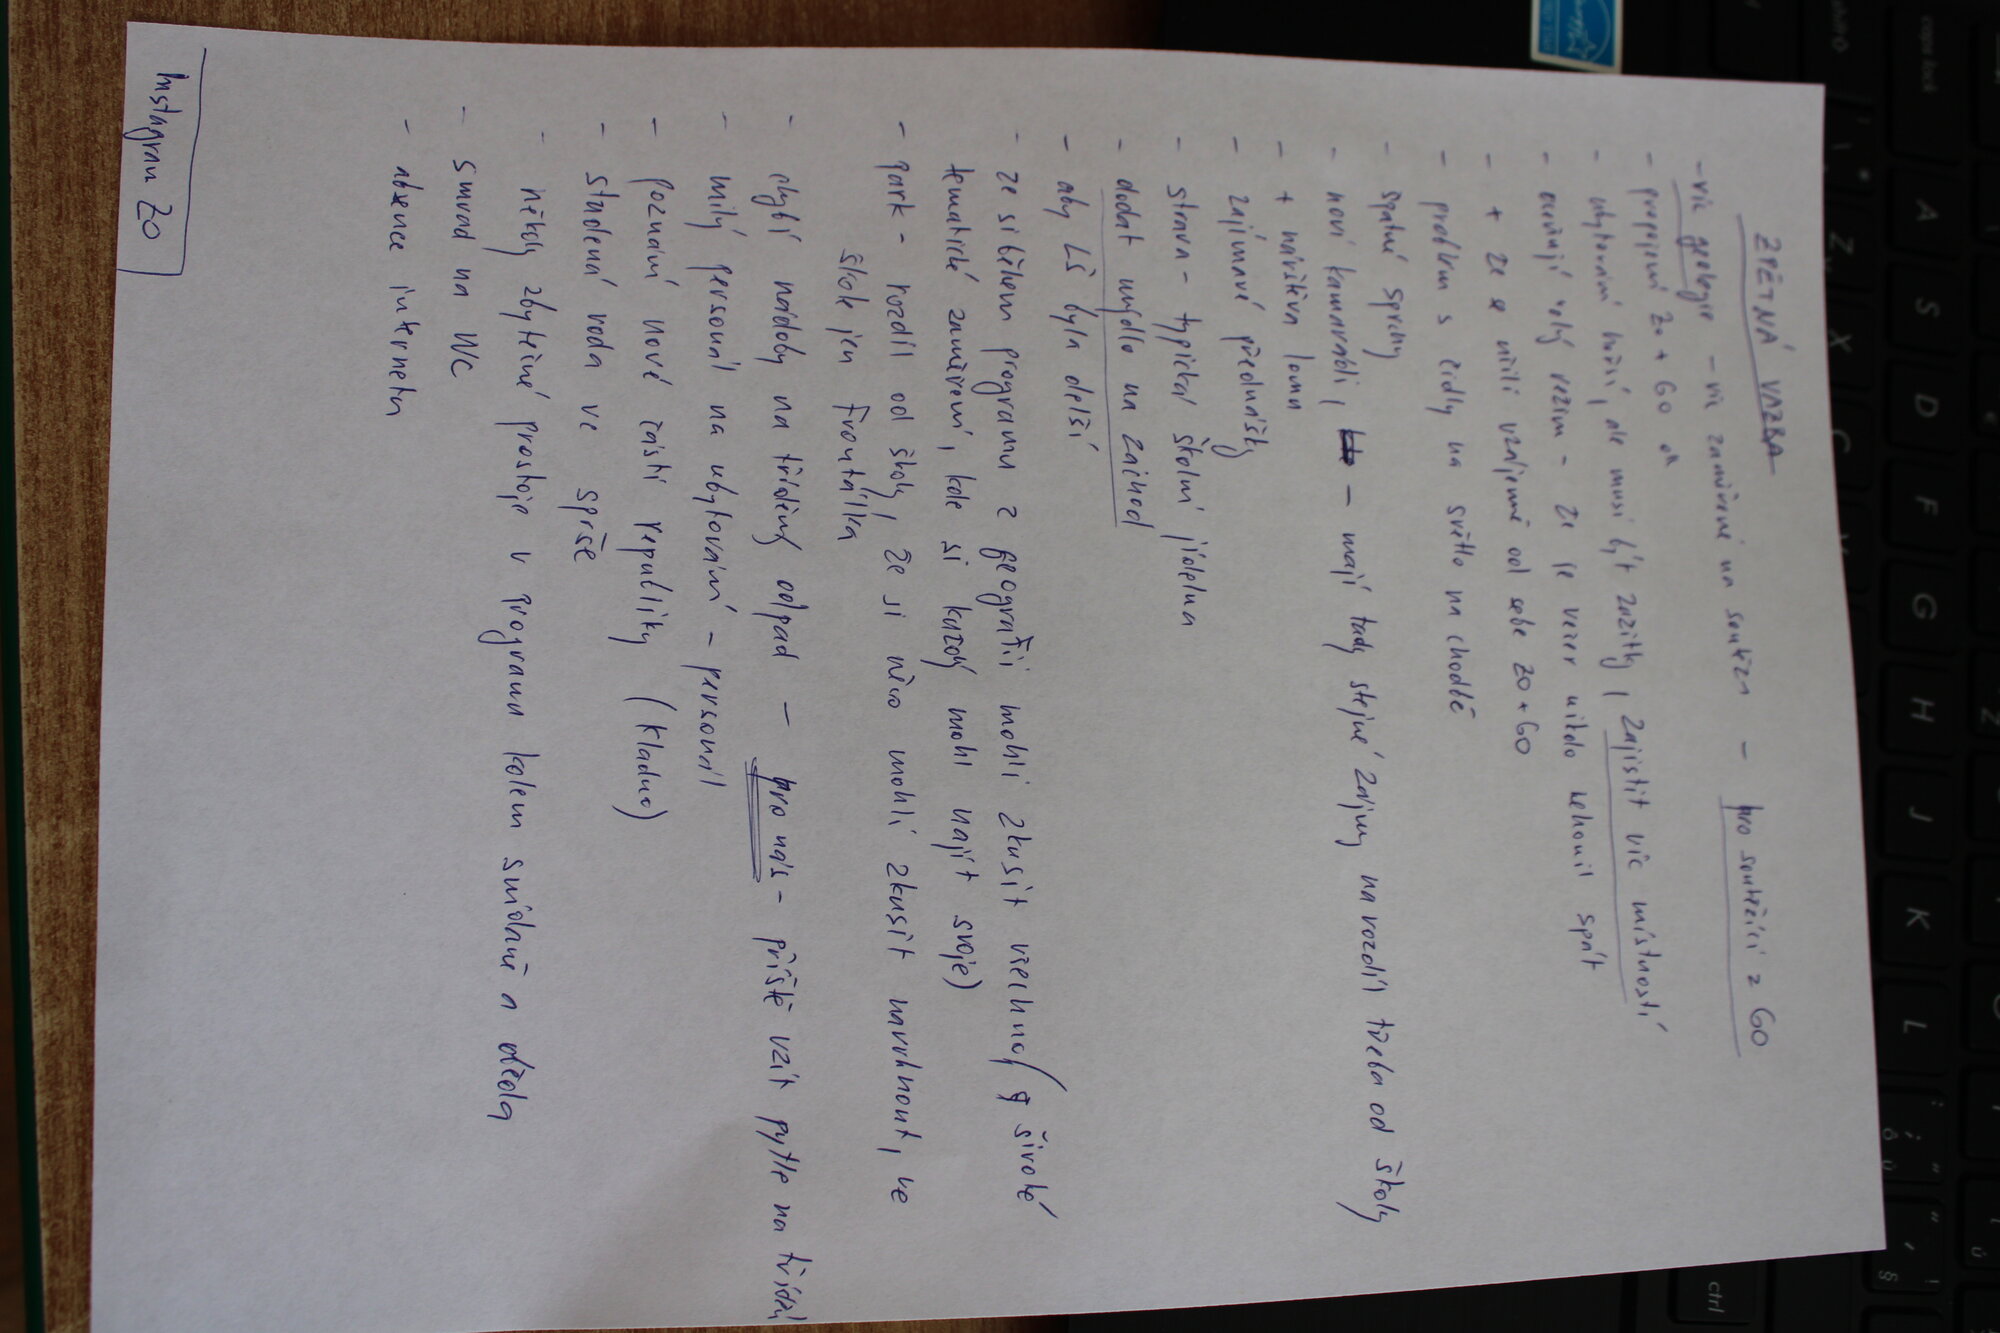 ZPĚTNÁ VAZBA
- víc geologie - víc zaměřené na soutěžn - pro soutěžící z GO
- propojení ZO + GO ok
- ubytování hrůzné, ale musí být zážitky, zajistit víc místností
- oceňují volný režim - že je večer nikdo nehonil spát
- + že se učili vzájemně od sebe ZO + GO
- problém s čidly na světlo na chodbě
- špatné sprchy
- noví kamarádi, - mají tady stejné zájmy na rozdíl třeba od školy
- + návštěva lomu
- zajímavé přednášky
- strava - typická školní jídelna
- dodat mýdlo na záchod
- aby LŠ byla delší
- že si během programu z geografií mohli zkusit všechno / široké
tematické zaměření, kde si každý mohl najít svoje)
- park - rozdíl od školy, že si něco mohli zkusit navrhnout, ve
škole jen frontálka
- chybí nádoby na tříděný odpad - pro nás - příště vzít pytle na třídění
- milý personál na ubytování - personál
- poznání nové části republiky (Kladno)
- studená voda ve sprše
- někdy zbytečné prostoje v programu kolem snídaně a oběda
- smrad na WC
- absence internetu
Instagram ZO
A S D F G H J K L
Z X C
caps lock
ctrl